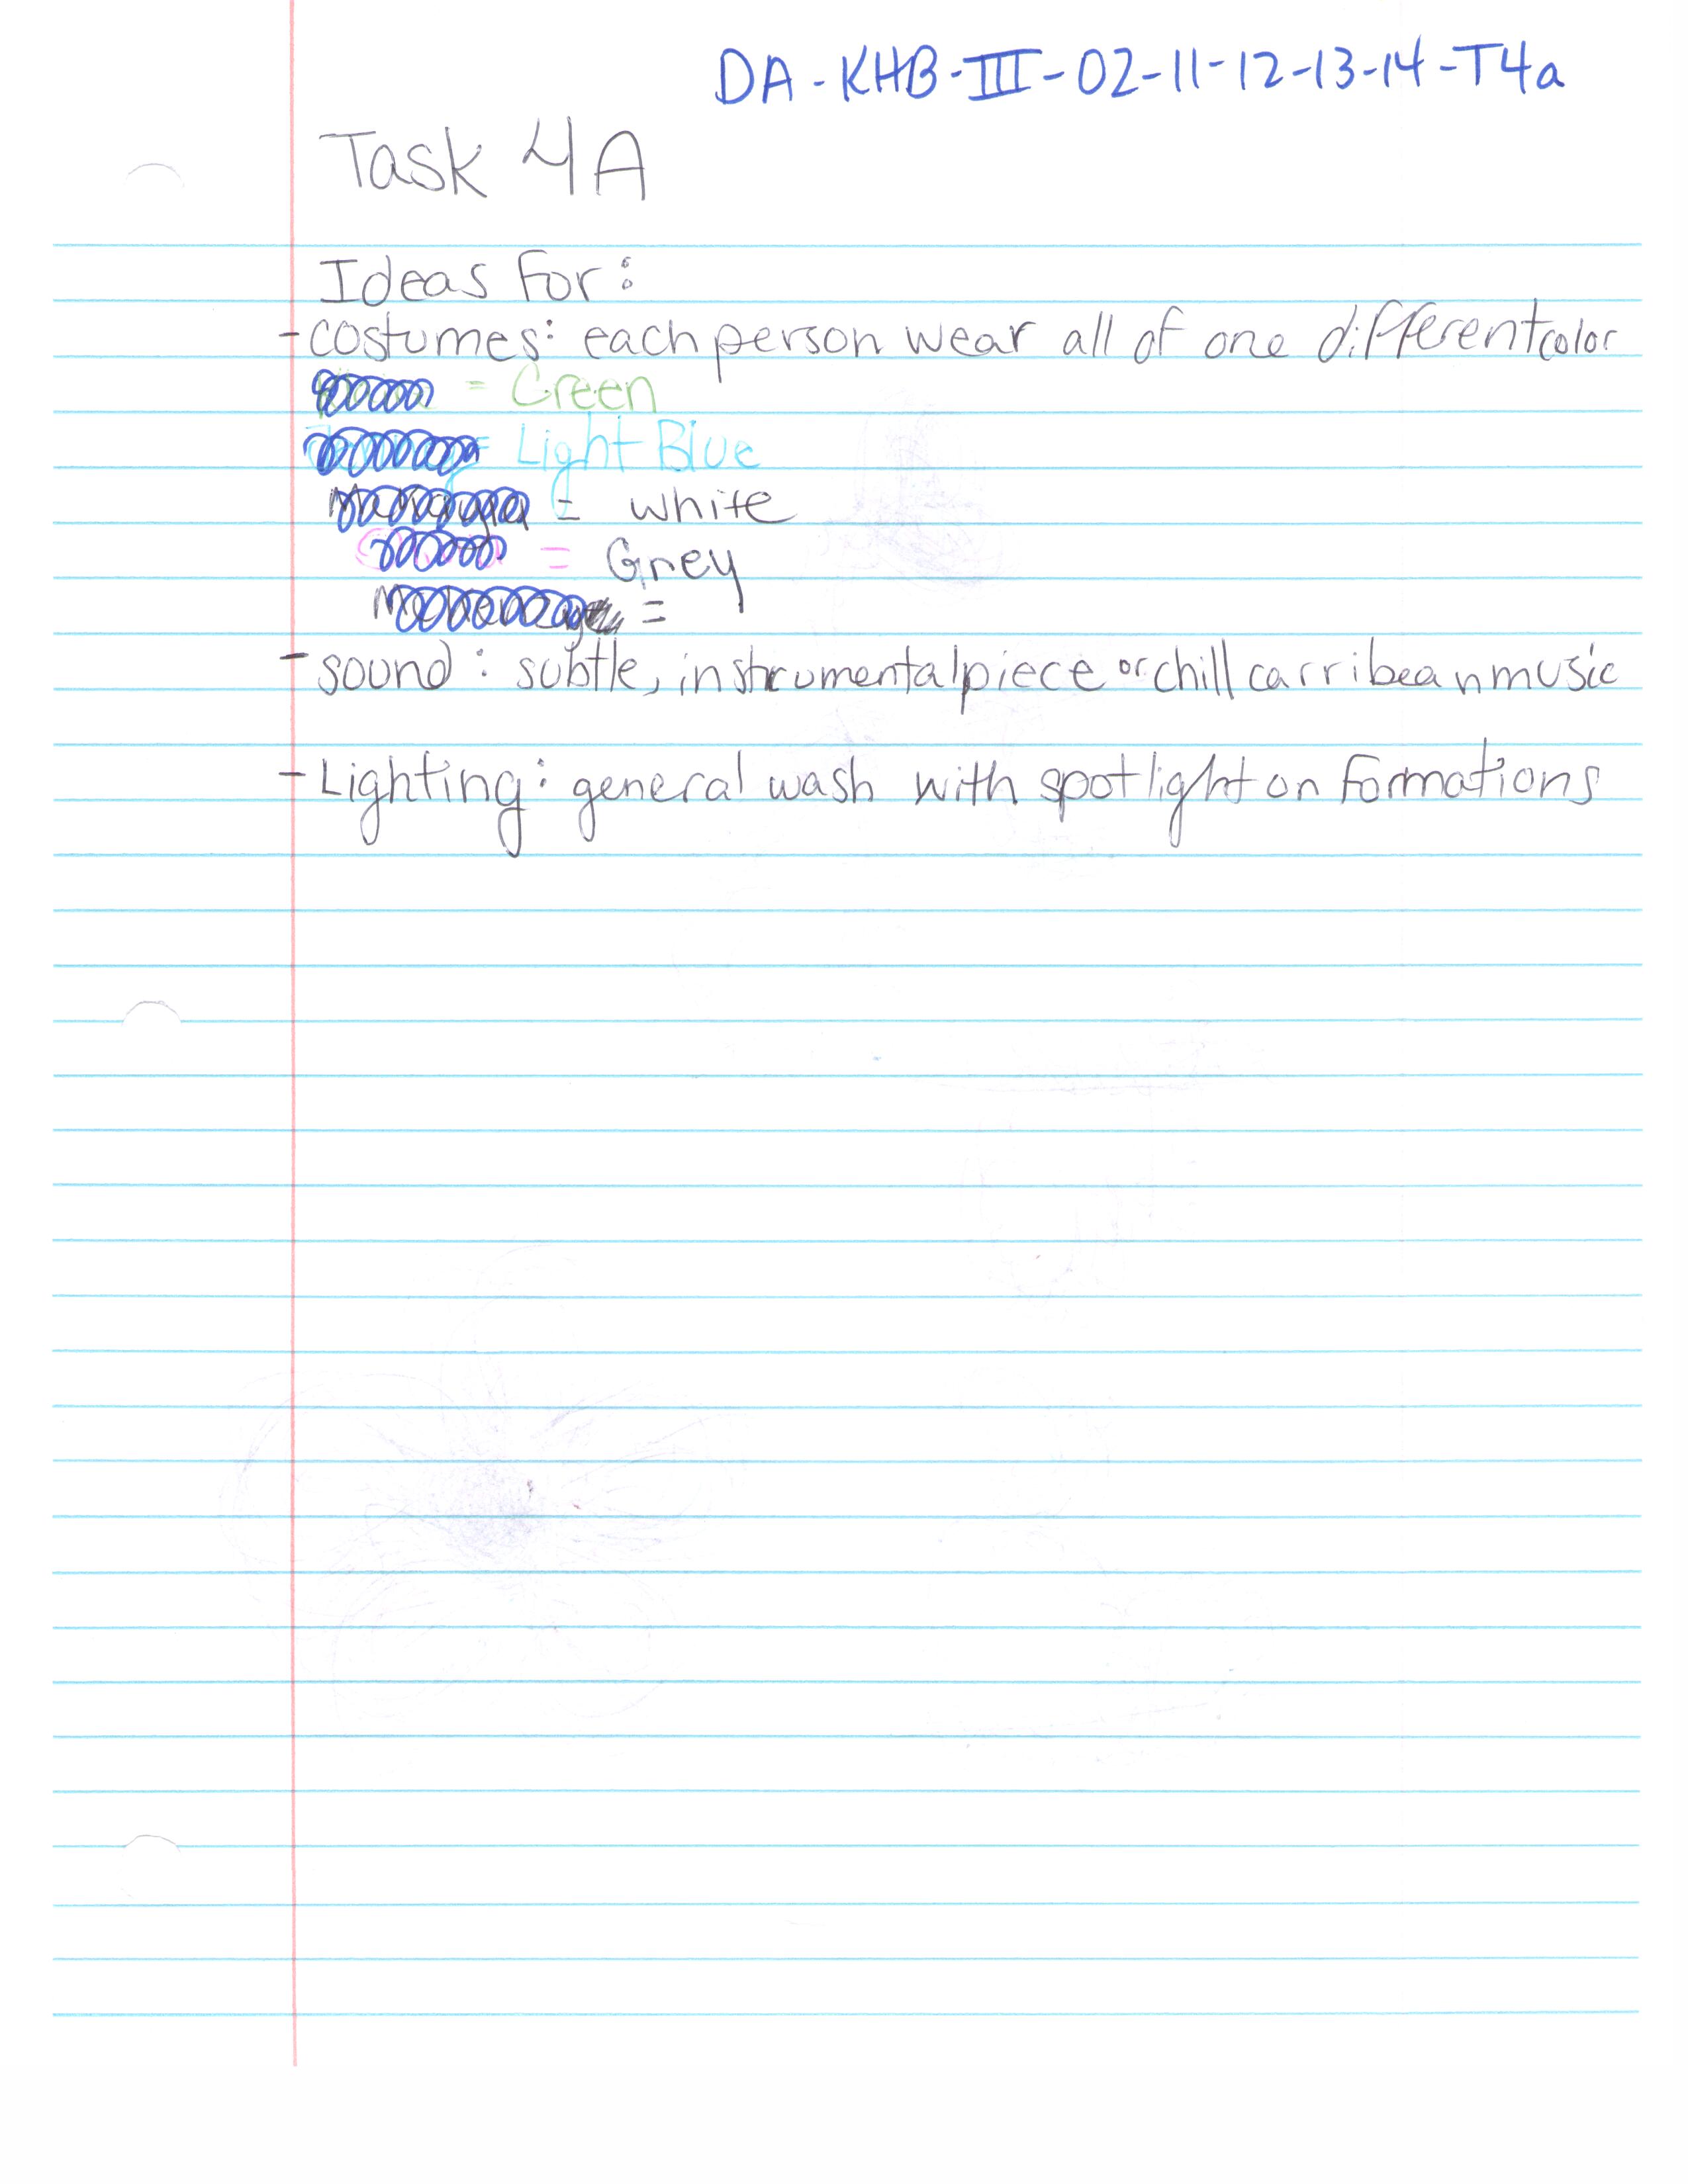 DA-KHB-III-02-11-12-13-14-T4a
Task 4A
Ideas for:
- costumes: each person wear all of one different color
= Green
= Light Blue
= white
= Grey
=
- sound: subtle, instrumental piece or chill carribean music
- Lighting: general wash with spotlight on formations